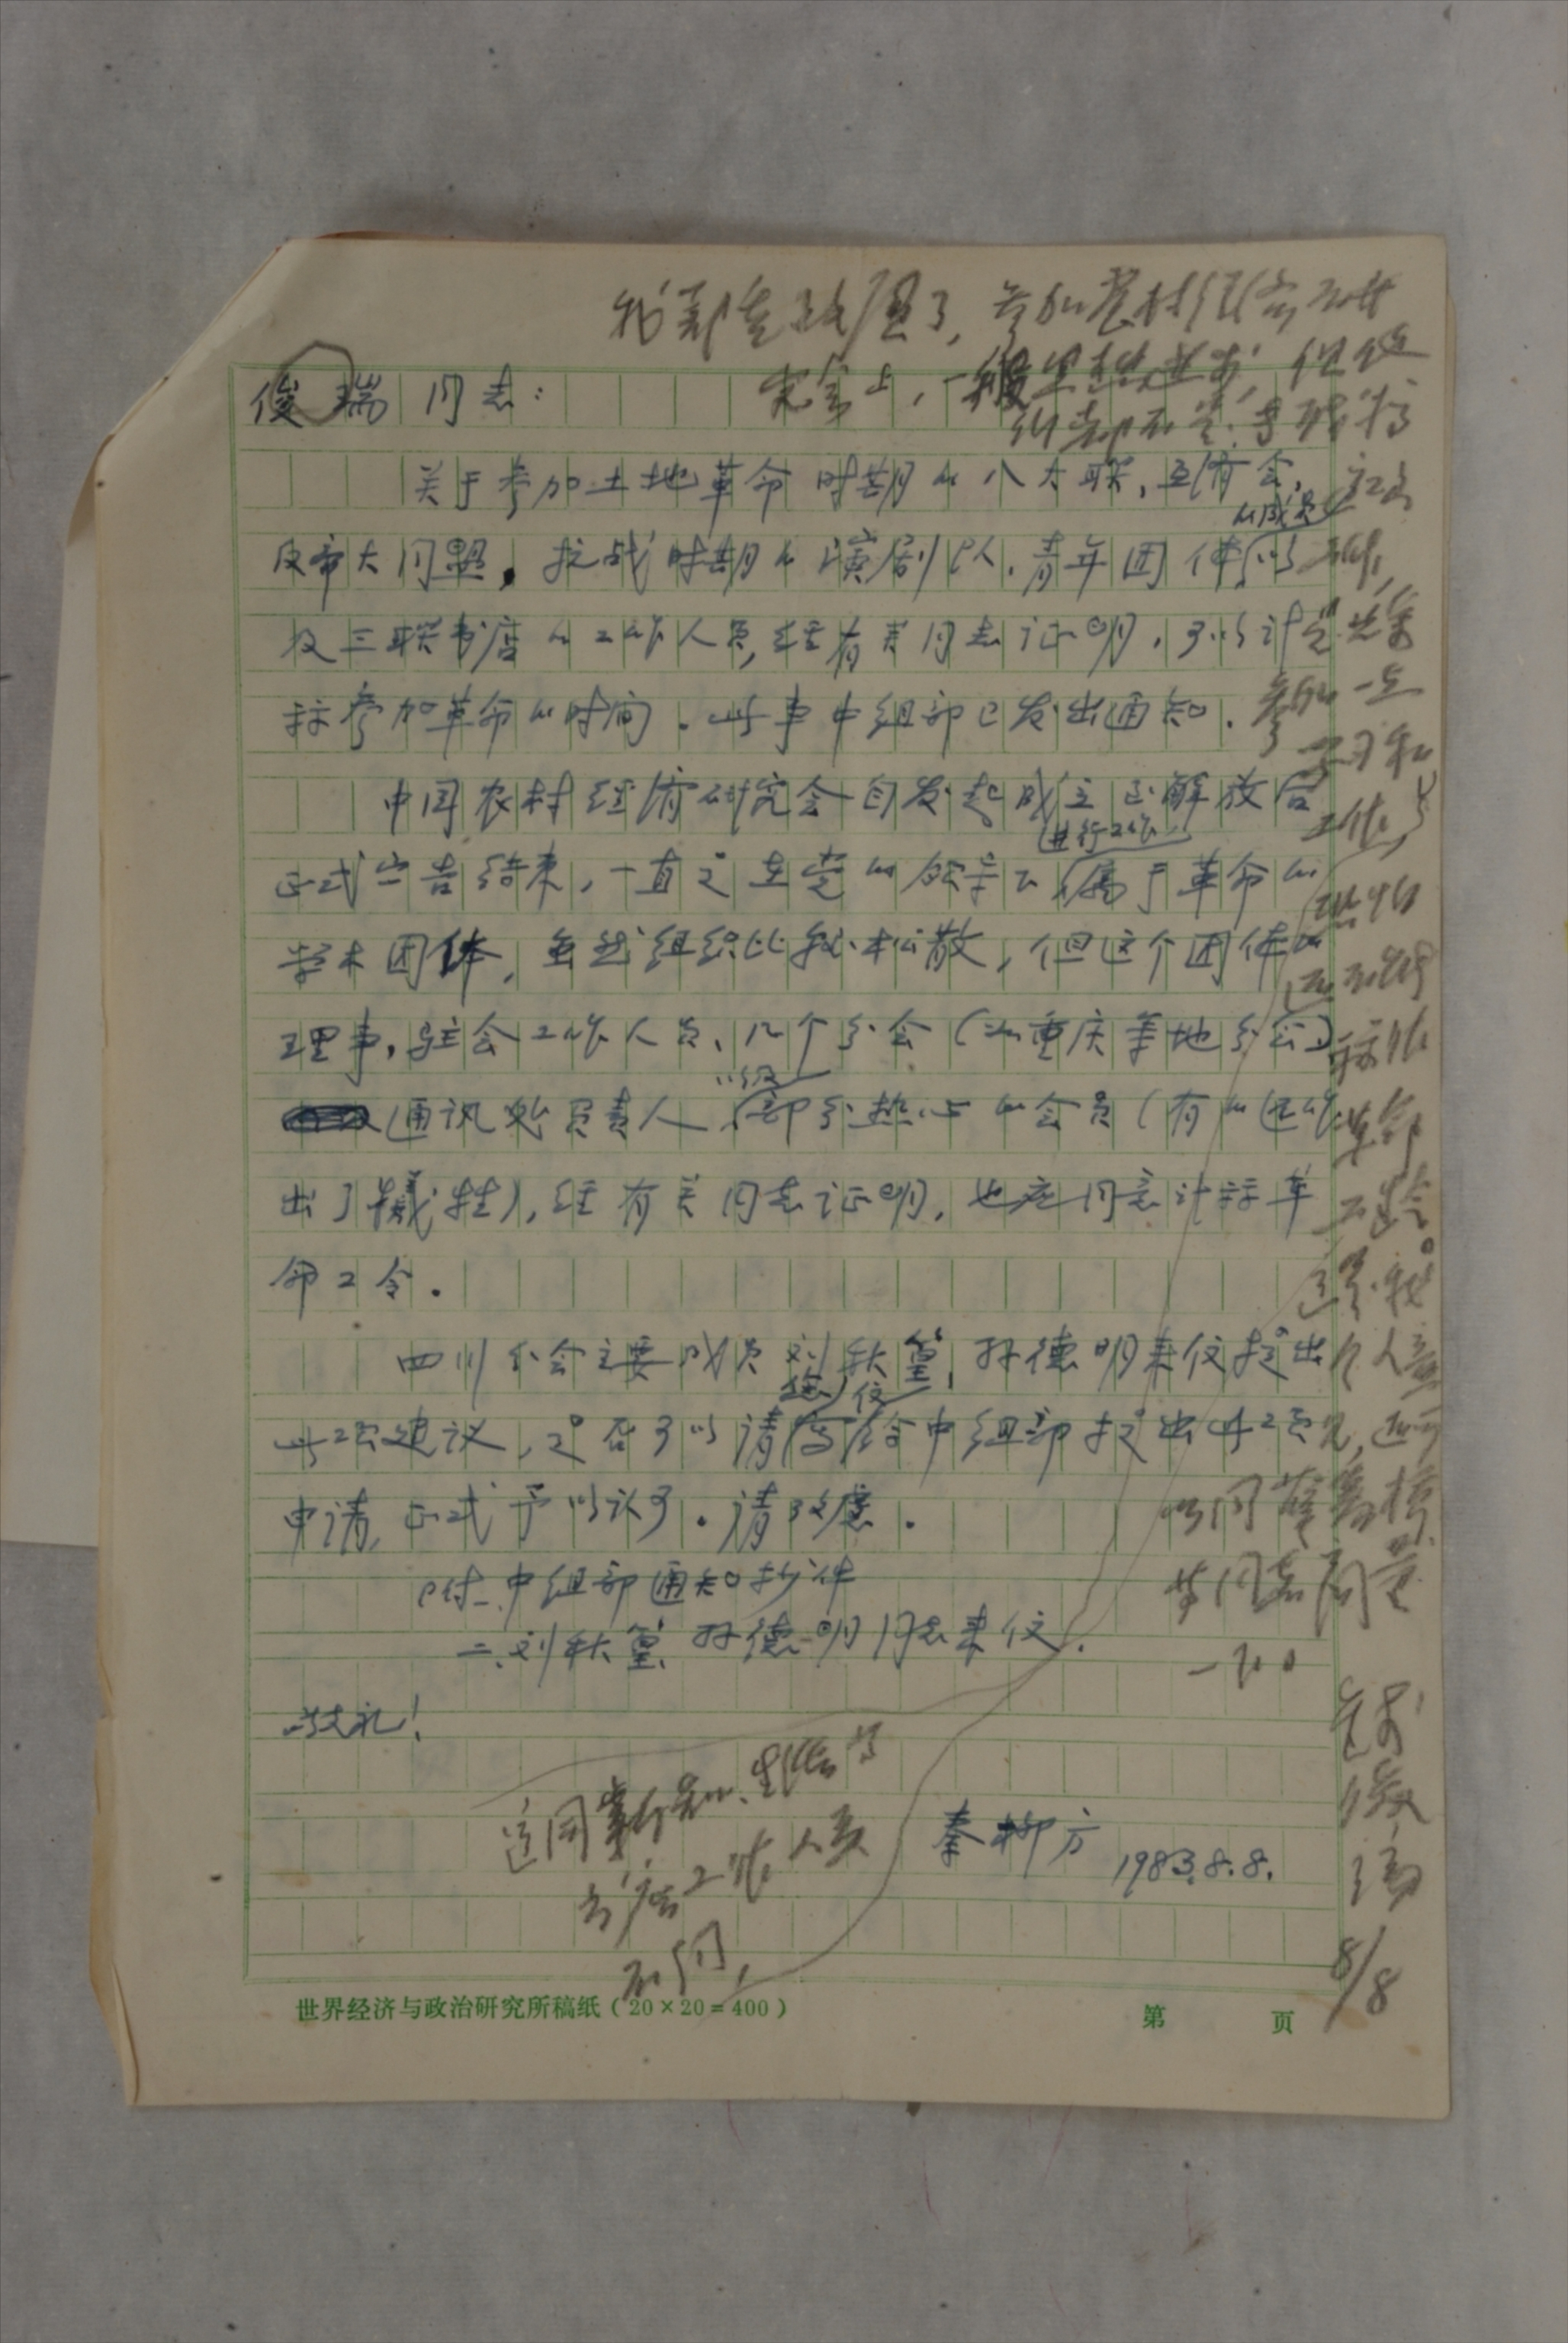 我都考虑过了，参加农村经济研
究会上，一般思想进步，但
俊瑞同志：
关于参加土地革命时期的八大联，互济会，
的成员
反帝大同盟，抗战时期的演剧队，青年团体，以
及三联书店的工作人员，经有关同志证明，可以计
算参加革命的时间。此事中组部已发出通知。
参加一点
学习和
工作，
中国农村经济研究会自发起成立至解放后
进行工作
正式宣告结束，一直是在党的领导下，属于革命的
学术团体，虽然组织比较松散，但这个团体的
理事，驻会工作人员、几个分会（如重庆等地分会）
以及
通讯处负责人、部分热心的会员（有的还作
出了牺牲），经有关同志证明，也应同意计算革
命工令。
算作
革命
工龄。
这是我
个人意
见，还可
四川分会主要成员刘秋篁、孙德明来信提出
您 信
此项建议，是否可以请写给中组部提出此项
申请，正式予以认可。请考虑。
以同薛暮桥
等同志商量
一下。
附一、中组部通知抄件
二、刘秋篁、孙德明同志来信。
敬礼！
这同新知、生活等
书店工作人员
不同，
秦柳方
1983.8.8.
钱
俊
瑞
8/8
世界经济与政治研究所稿纸（20×20=400）
第 页